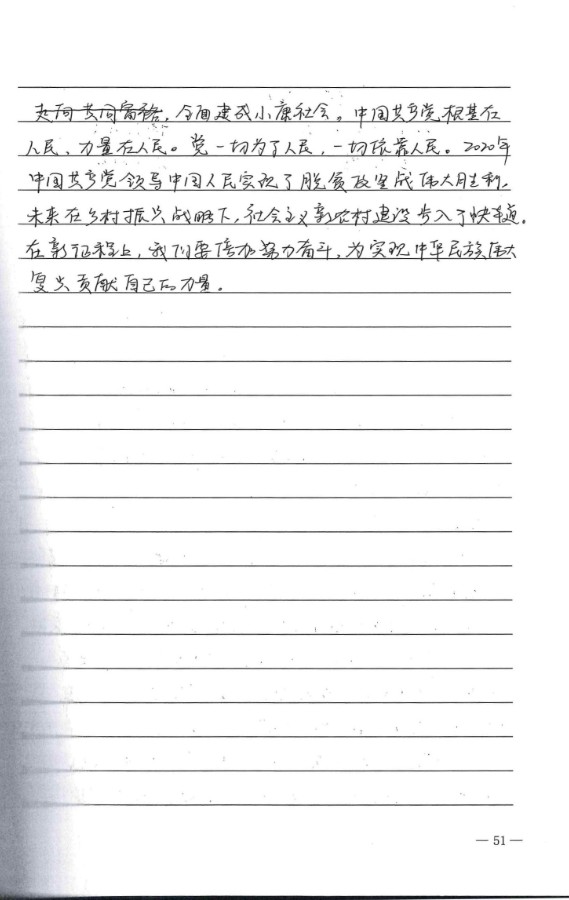 走向共同富裕，全面建成小康社会。中国共产党根基在
人民、力量在人民。党一切为了人民，一切依靠人民。2020年
中国共产党领导中国人民实现了脱贫攻坚战伟大胜利。
未来在乡村振兴战略下，社会主义新农村建设步入了快车道。
在新征程上，我们要倍加努力奋斗，为实现中华民族伟大
复兴贡献自己的力量。
— 51 —